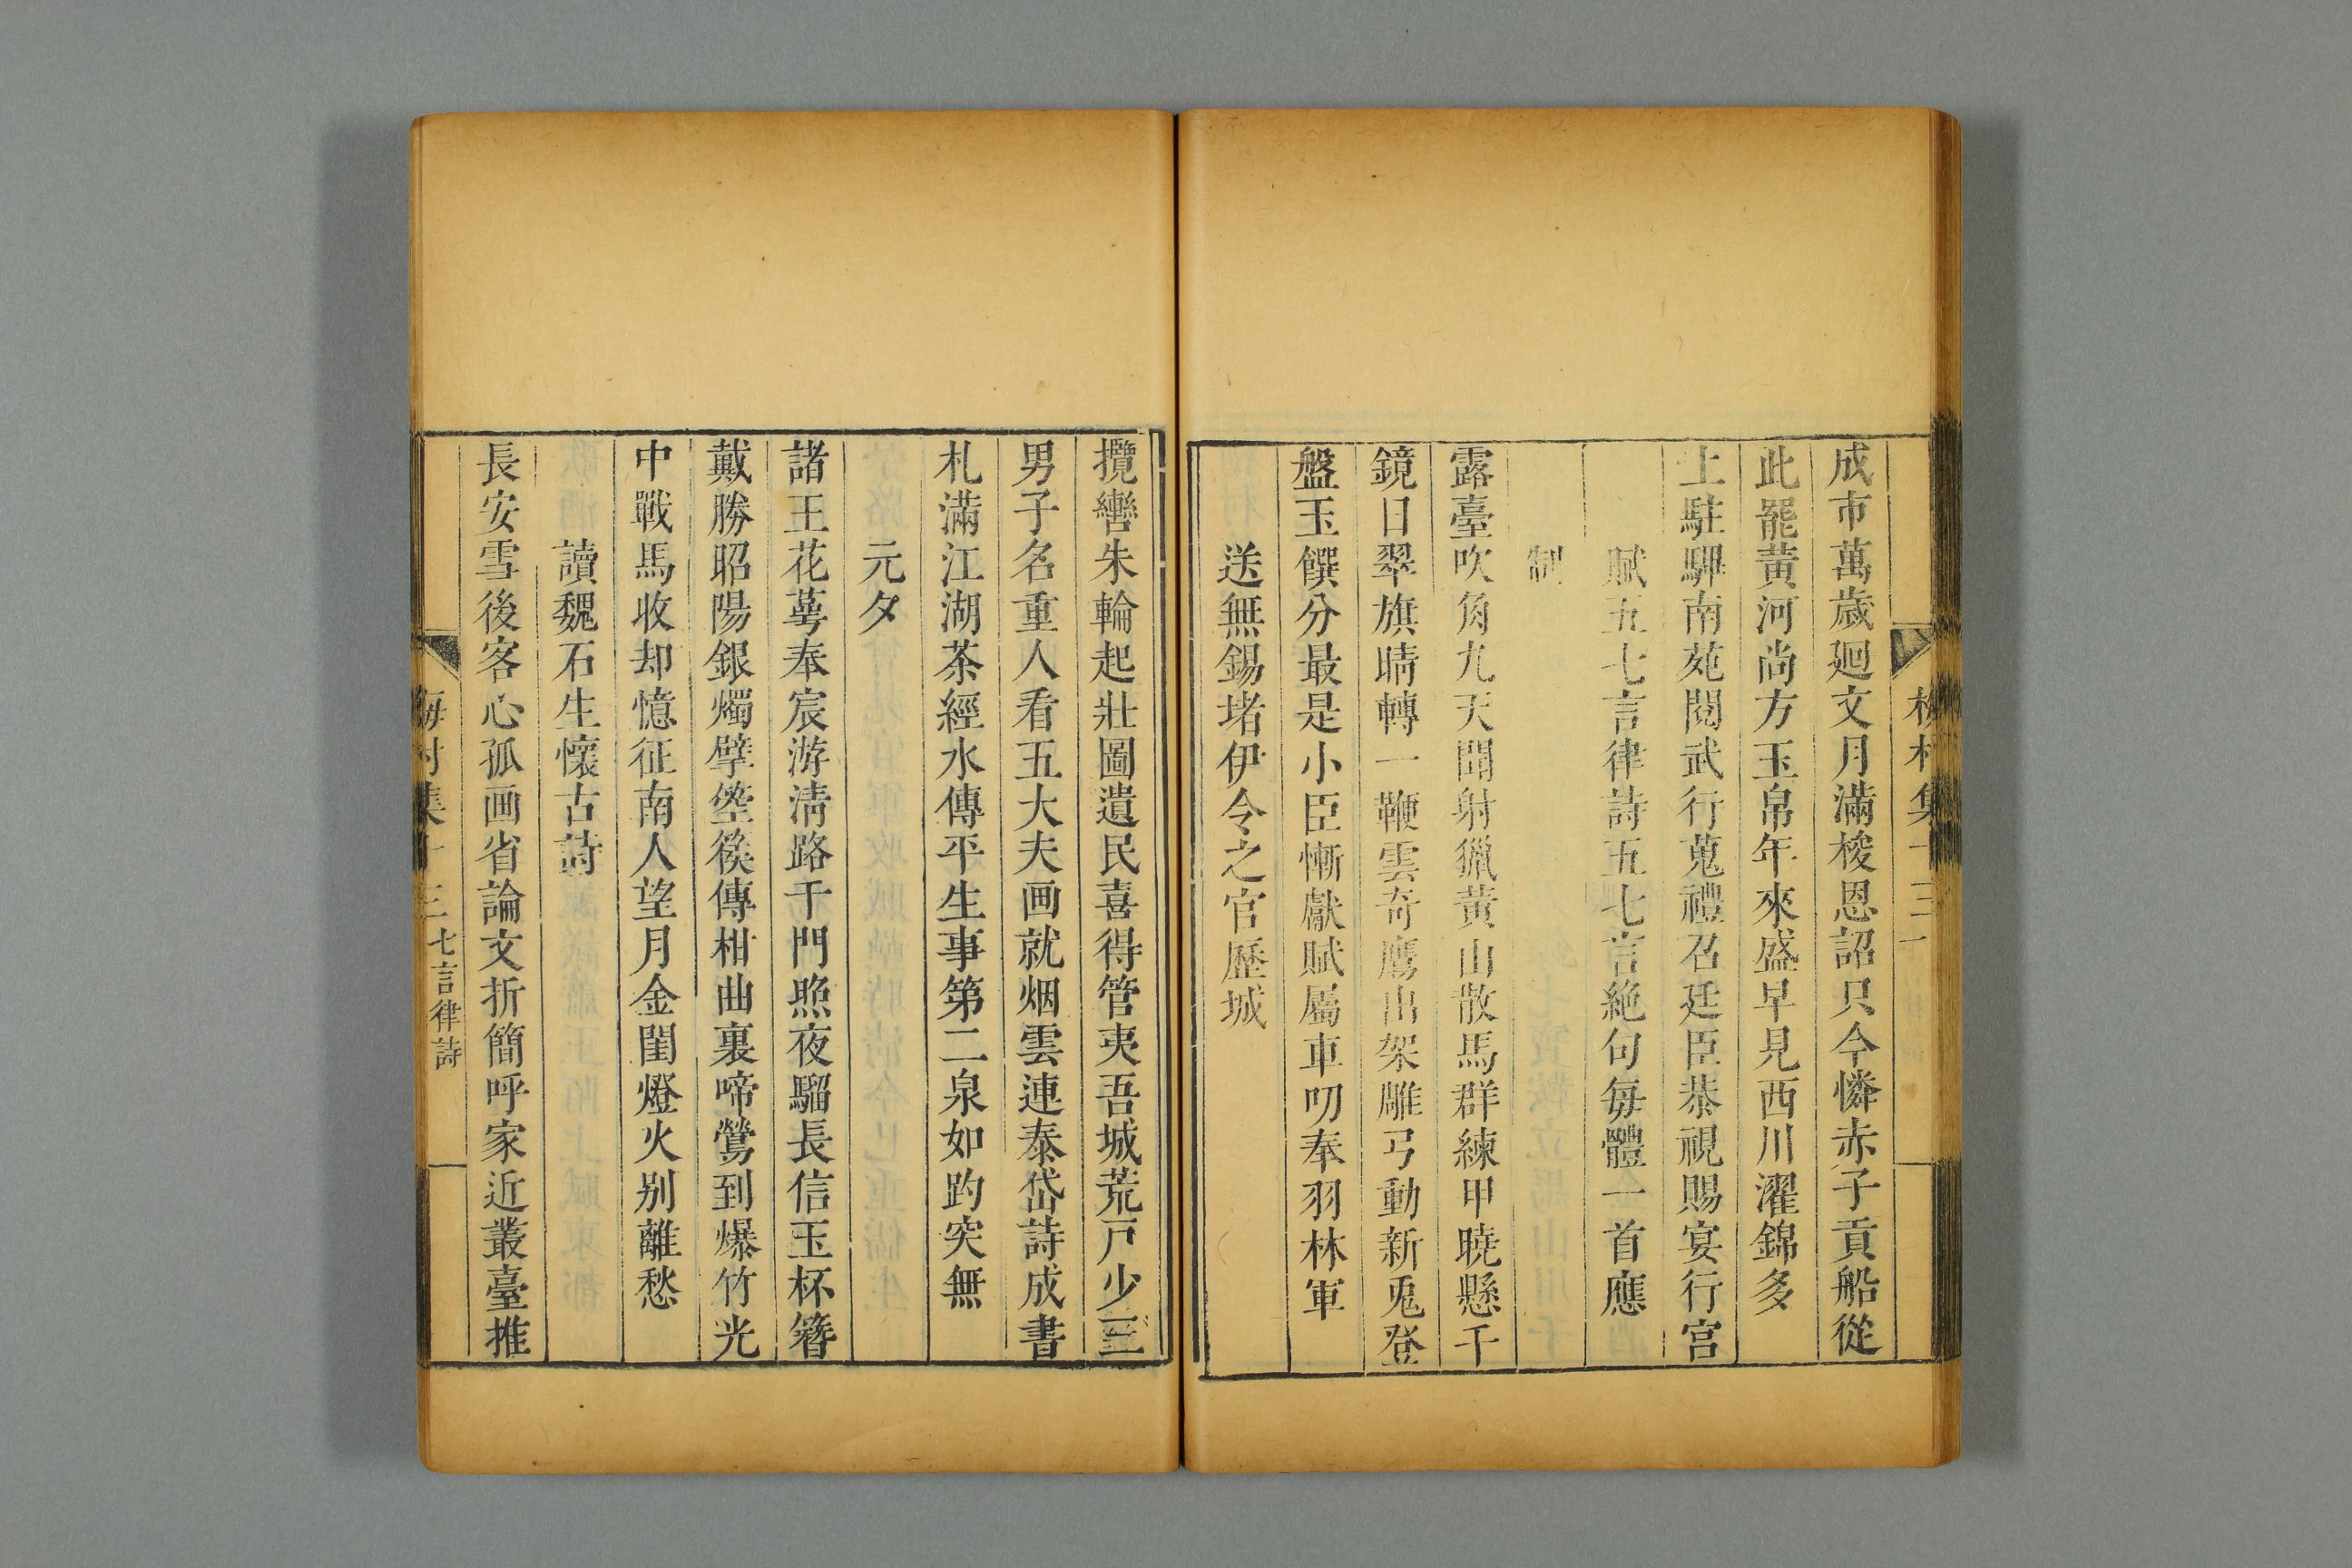 梅村集十三
成市萬歲廻文月滿梭恩詔只今憐赤子貢船從
此罷黃河尚方玉帛年來盛早見西川濯錦多
上駐驆南苑閱武行蒐禮召廷臣恭視賜宴行宫
賦五七言律詩五七言絶句每體一首應
制
露臺吹角九天聞射獵黃山散馬群練甲曉懸千
鏡日翠旗晴轉一鞭雲奇鷹出架雕弓動新兎登
盤玉饌分最是小臣慚獻賦屬車叨奉羽林軍
送無錫堵伊令之官歷城
攬轡朱輪起壯圖遺民喜得管夷吾城荒戸少三
男子名重人看五大夫画就烟雲連泰岱詩成書
札滿江湖茶經水傳平生事第二泉如趵突無
元夕
諸王花萼奉宸游淸路千門照夜騮長信玉杯簪
戴勝昭陽銀燭擘箜篌傳柑曲裏啼鶯到爆竹光
中戰馬收却憶征南人望月金閨燈火别離愁
讀魏石生懷古詩
長安雪後客心孤画省論文折簡呼家近叢臺推
梅村集十三 七言律詩